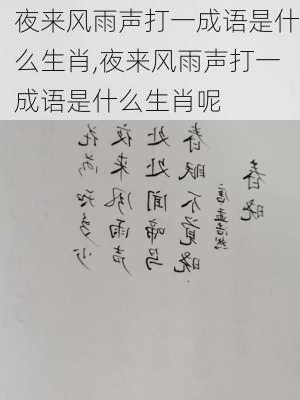 夜来风雨声打一成语是什
么生肖,夜来风雨声打一
成语是什么生肖呢
春晓
唐孟浩然
春眠不覺晓
处处闻啼鸟
夜来风雨声
花落知多少